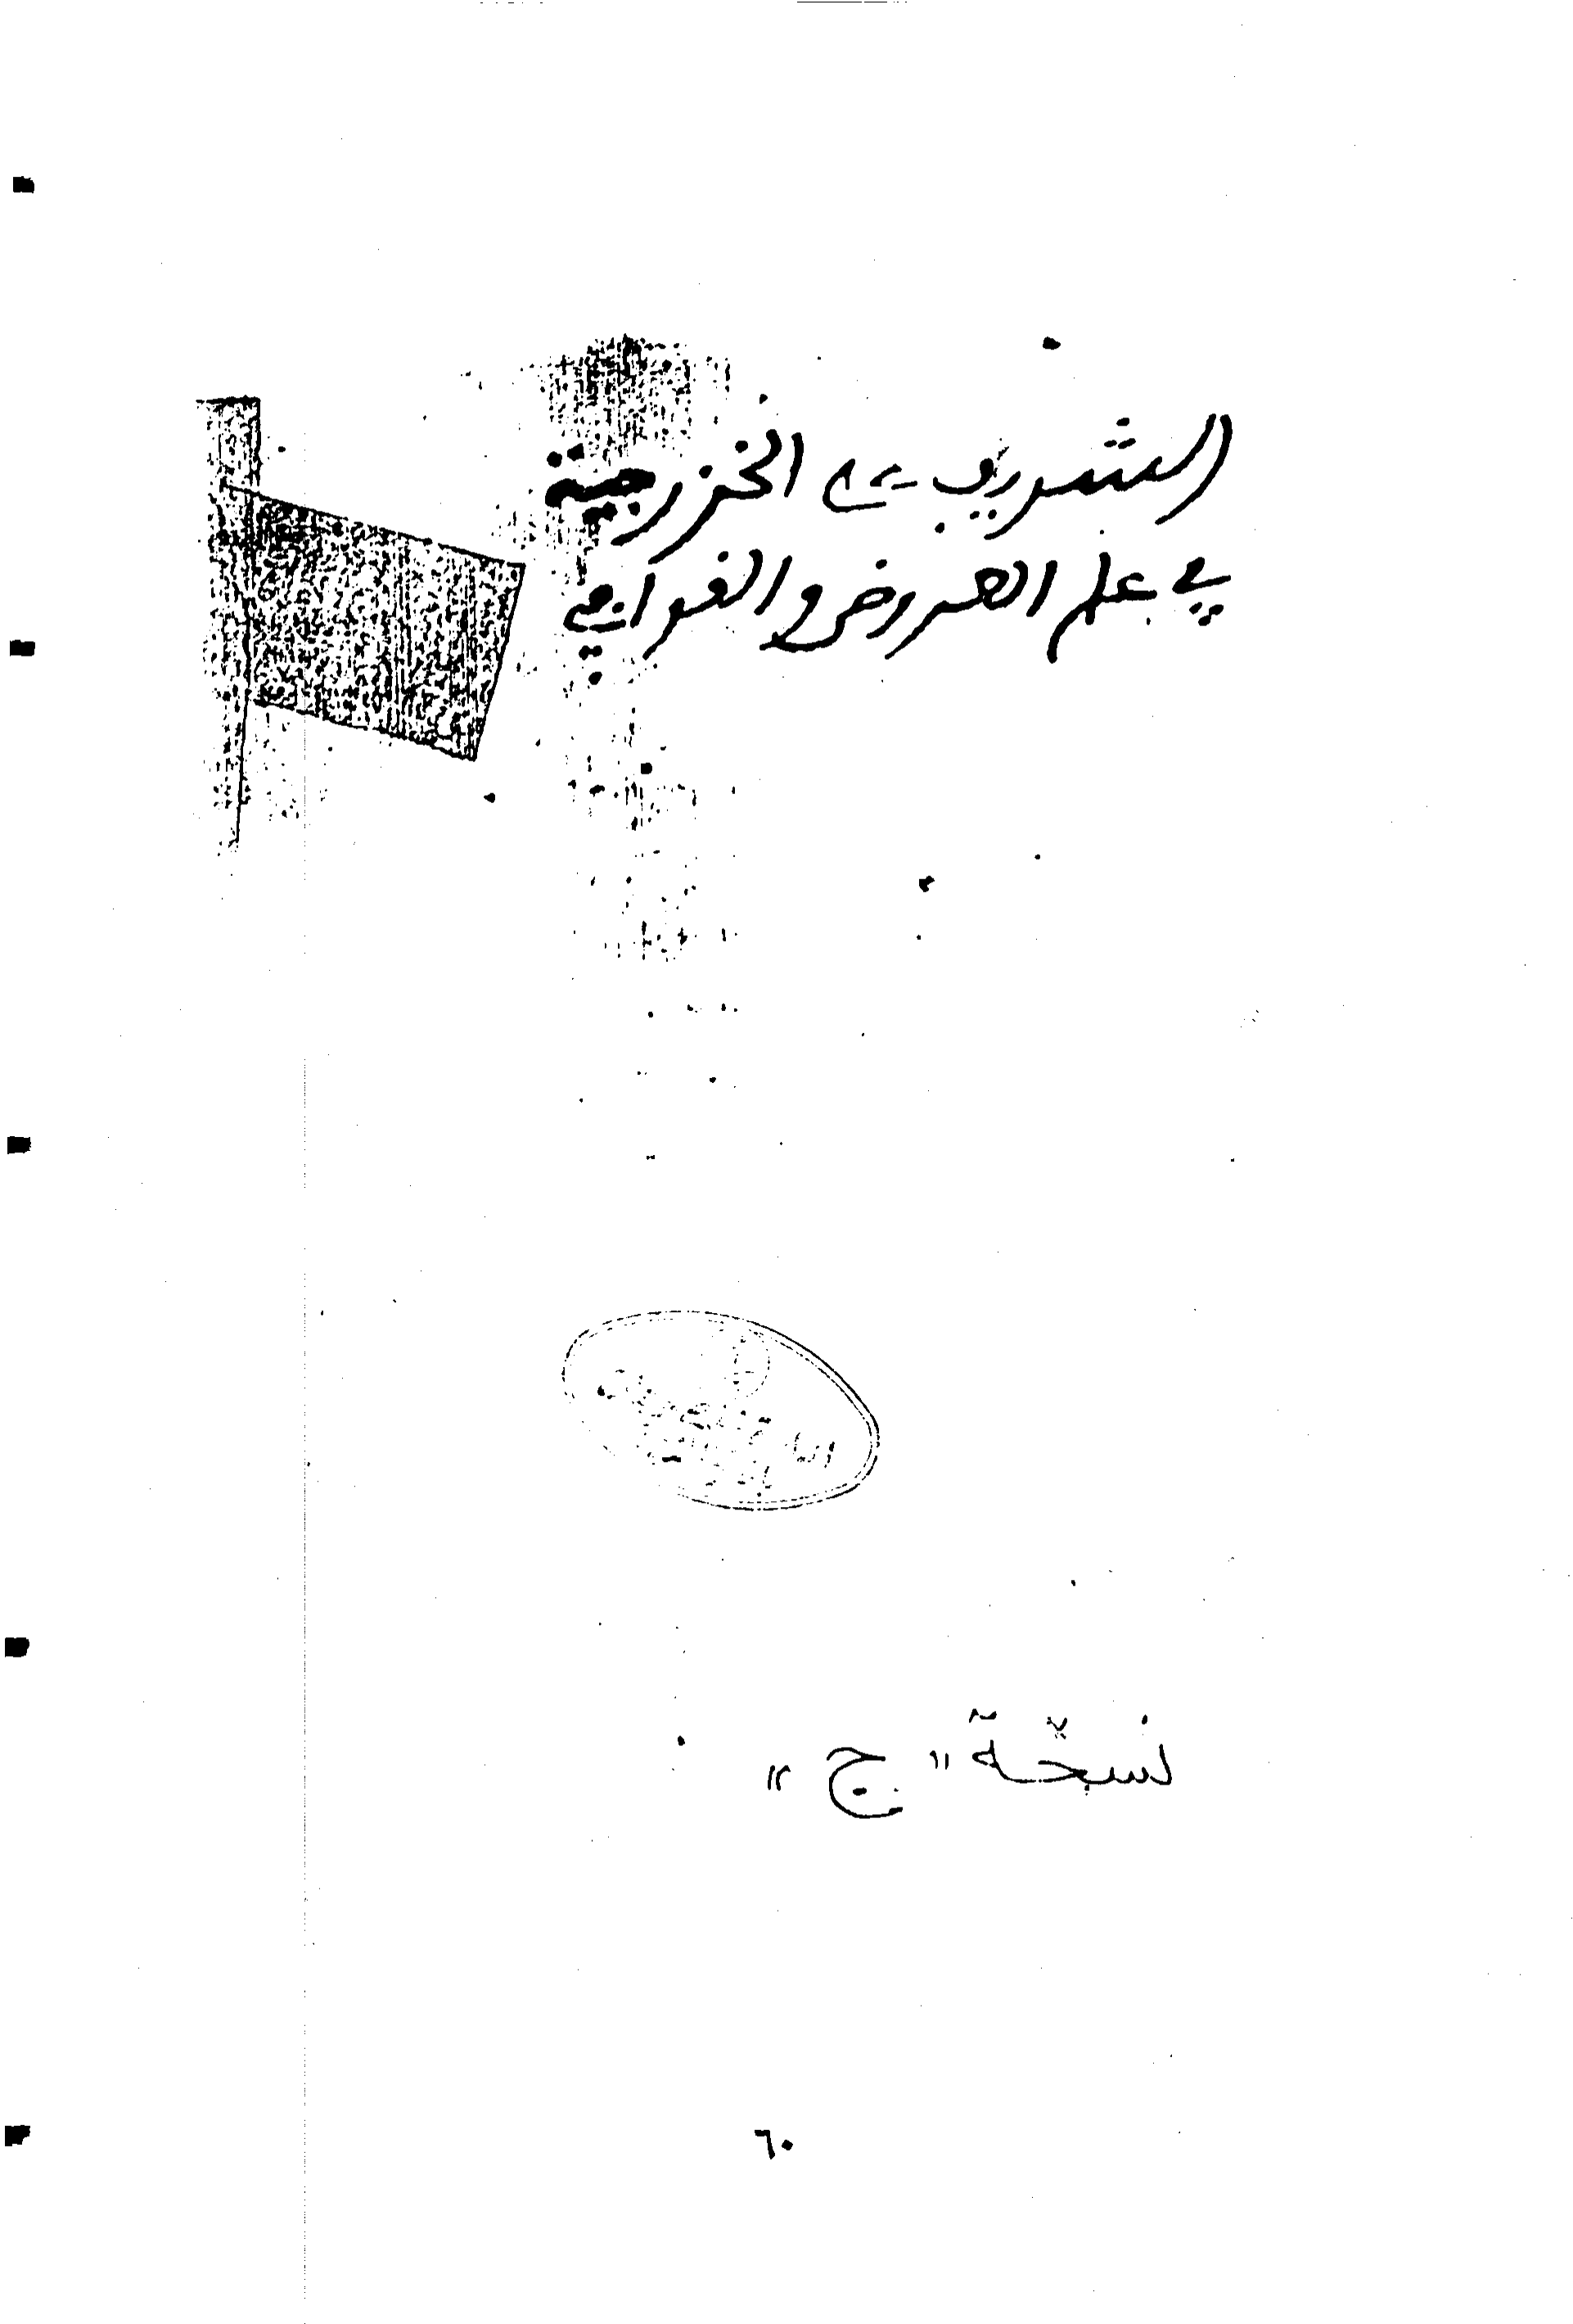 الشريف على الخزرجية
في علم العروض والقوافي
نسخة "ج"
٦٠